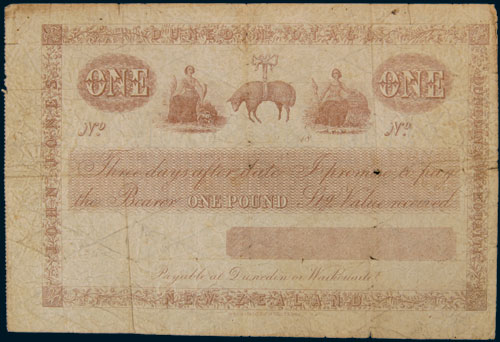 JOHN JONES
ONE ONE
No No
Three days after date I promise to pay
the Bearer ONE POUND Stg Value received
Payable at Dunedin or
NEW ZEALAND